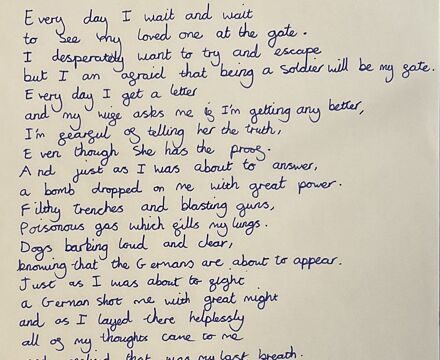 Every day I wait and wait
to see my loved one at the gate.
I desperately want to try and escape
but I am afraid that being a soldier will be my gate.
Every day I get a letter
and my wife asks me if I'm getting any better,
I'm fearful of telling her the truth,
Even though she has the proof.
And just as I was about to answer,
a bomb dropped on me with great power.
Filthy trenches and blasting guns,
Poisonous gas which fills my lungs.
Dogs barking loud and clear,
knowing that the Germans are about to appear.
Just as I was about to fight
a German shot me with great might
and as I layed there helplessly
all of my thoughts came to me
and that was my last breath.